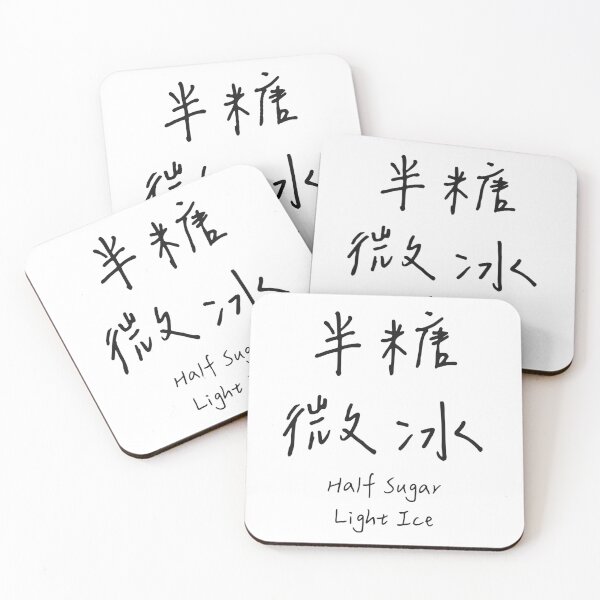 半糖
半糖
微冰
半糖
微冰
Half
Light
半糖
微冰
Half Sugar
Light Ice